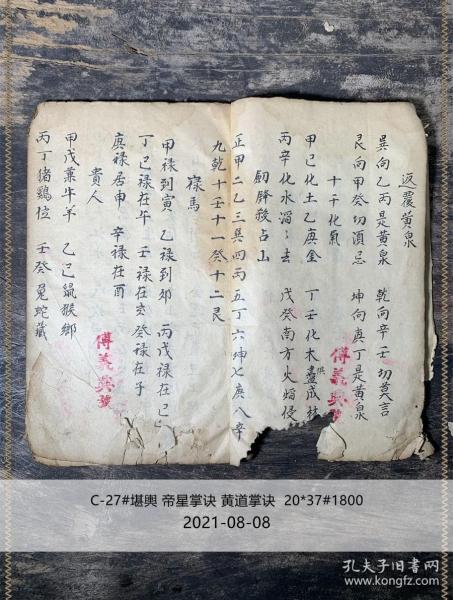 返覆黄泉
巽向乙丙是黄泉　乾向辛壬切莫言
艮向甲癸切須忌　坤向庚丁是黄泉
十干化氣
甲己化土乙庚金　丁壬化木盡成林
丙辛化水滔滔去　戊癸南方火焰侵
劒鋒殺占山
正甲二乙三巽四丙五丁六坤七庚八辛
九乾十壬十一癸十二艮
祿馬
甲禄到寅　乙禄到夘　丙戊禄在巳
丁己禄在午　壬禄在亥癸禄在子
庚禄居申　辛禄在酉
貴人
甲戊葉牛羊　乙己鼠猴鄉
丙丁猪鷄位　壬癸兔蛇藏
傅義興號
傅義興號
C-27#堪輿 帝星掌诀 黄道掌诀 20*37#1800
2021-08-08
孔夫子旧書网
www.kongfz.com